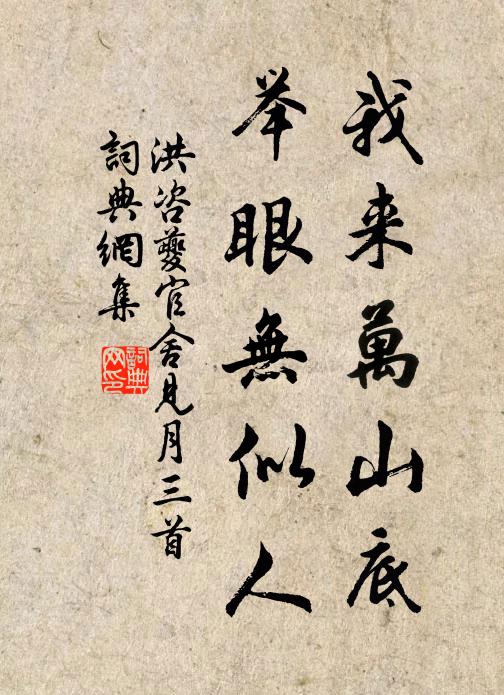 我来萬山底
举眼無似人
洪咨夔官舍見月三首
詞典網集
詞典网印